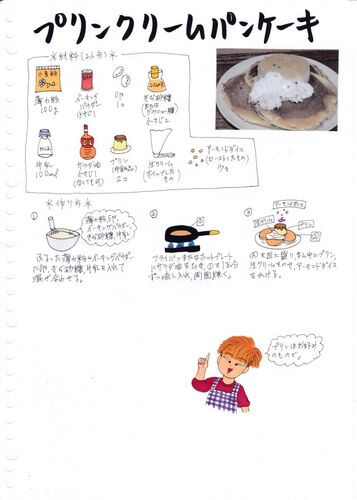 プリンクリームパンケーキ
※材料(2人分)※
小麦粉
SUGAR
薄力粉
100g
ベーキング
パウダー
小さじ1
卵
1コ
きび砂糖
(または
グラニュー糖)
小さじ2
MILK
牛乳
100ml
サラダ油
小さじ1
プリン
2コ
生クリーム
(ホイップしたもの)
アーモンドダイス
(ローストしたもの)
少々
※作り方※
①
薄力粉、卵、
ベーキングパウダー、
きび砂糖、牛乳
ふるった薄力粉とベーキングパウダー
に卵、きび砂糖、牛乳を入れて
混ぜ合わせる。
②
フライパンまたはホットプレート
にサラダ油をひき、①を
ずつ流し入れ、両面焼く。
③
アーモンドダイス
生クリーム
プリン
②を皿に盛り、まん中にプリン、
生クリームをのせ、アーモンドダイス
をかける。
プリンはお好み
のもので。